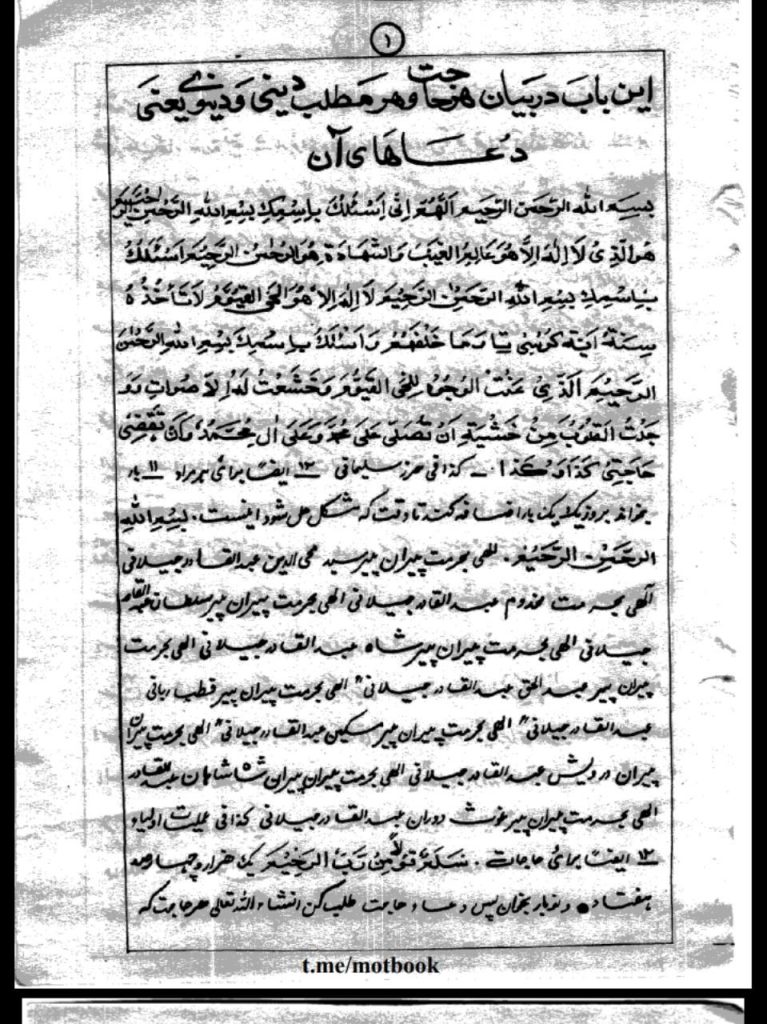 ۱
این باب در بیان هر حاجت و هر مطلب دینی و دنیوی یعنی
دعاهای آن
بسم الله الرحمن الرحیم اللهم انی اسئلک باسمک بسم الله الرحمن الرحیم
هو الذی لا اله الا هو عالم الغیب والشهادة هو الرحمن الرحیم اسئلک
باسمک بسم الله الرحمن الرحیم لا اله الا هو الحی القیوم لا تأخذه
سنة و اسئلک باسمک بسم الله الرحمن
الرحیم الذی عنت الوجوه للحی القیوم و خشعت له الاصوات و و
جلت القلوب من خشیته ان تصلی علی محمد و علی ال محمد وان تقضی
حاجتی کذا و کذا کذا فی حرز سلیمانی ۱۳ ایضا برای هر مراد ۱۱ بار
بخواند هر روز یک یک بار اضافه کند تا وقت که مشکل حل شود اینست. بسم الله
الرحمن الرحیم. الهی بحرمت پیران پیر سید محی الدین عبد القادر جیلانی
الهی بحرمت مخدوم عبد القادر جیلانی الهی بحرمت پیران پیر سلطان عبد القادر
جیلانی الهی بحرمت پیران پیر شاه عبد القادر جیلانی الهی بحرمت
پیران پیر عبد الحق عبد القادر جیلانی الهی بحرمت پیران پیر قطب ربانی
عبد القادر جیلانی الهی بحرمت پیران پیر مسکین عبد القادر جیلانی الهی بحرمت پیران
پیران درویش عبد القادر جیلانی الهی بحرمت پیران پیران شاه شاهان عبد القادر
الهی بحرمت پیران پیر غوث دوران عبد القادر جیلانی کذا فی عملیات اولیاء
۱۲ ایضا برای حاجات. سلام قولا من رب الرحیم یک هزار و چهار صد
هفتاد و نو بار بخوان پس دعاء حاجت طلب کن انشاء الله تعلی هر حاجت که
t.me/motbook